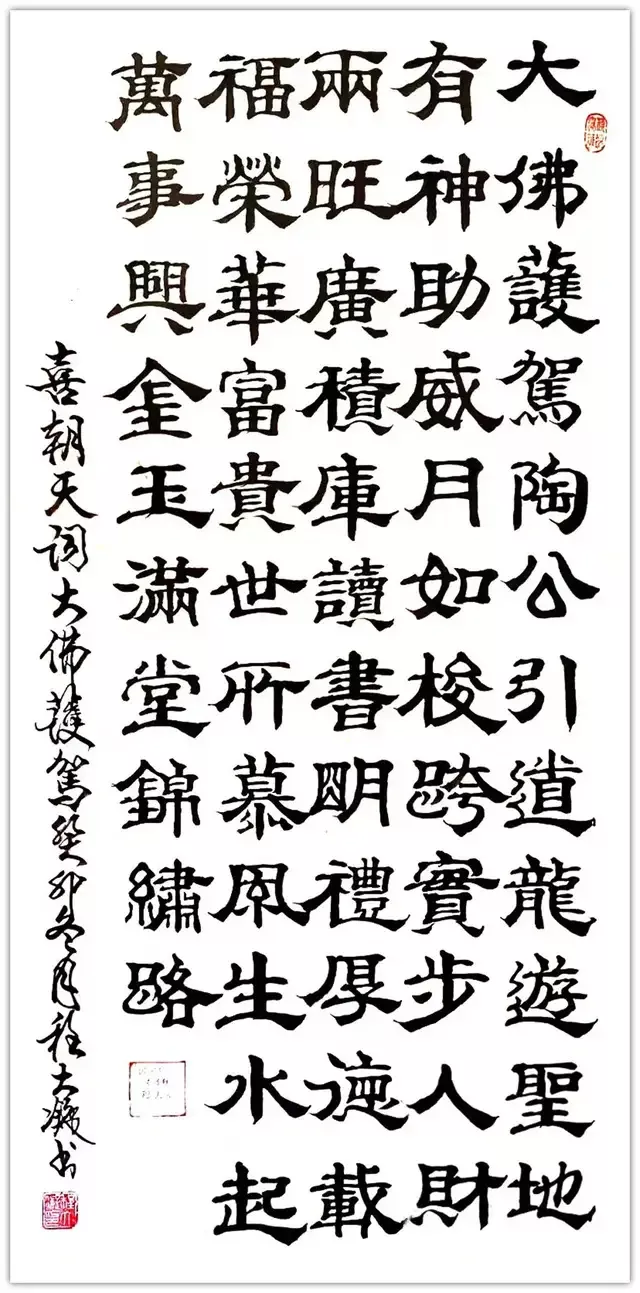 大佛護駕陶公引道龍遊聖地
有神助威月如梭跨實步人財
兩旺廣積庫讀書明禮厚德載
福榮華富貴世所慕風生水起
萬事興金玉滿堂錦繡路
喜朝天詞大佛護駕癸卯冬月程大書